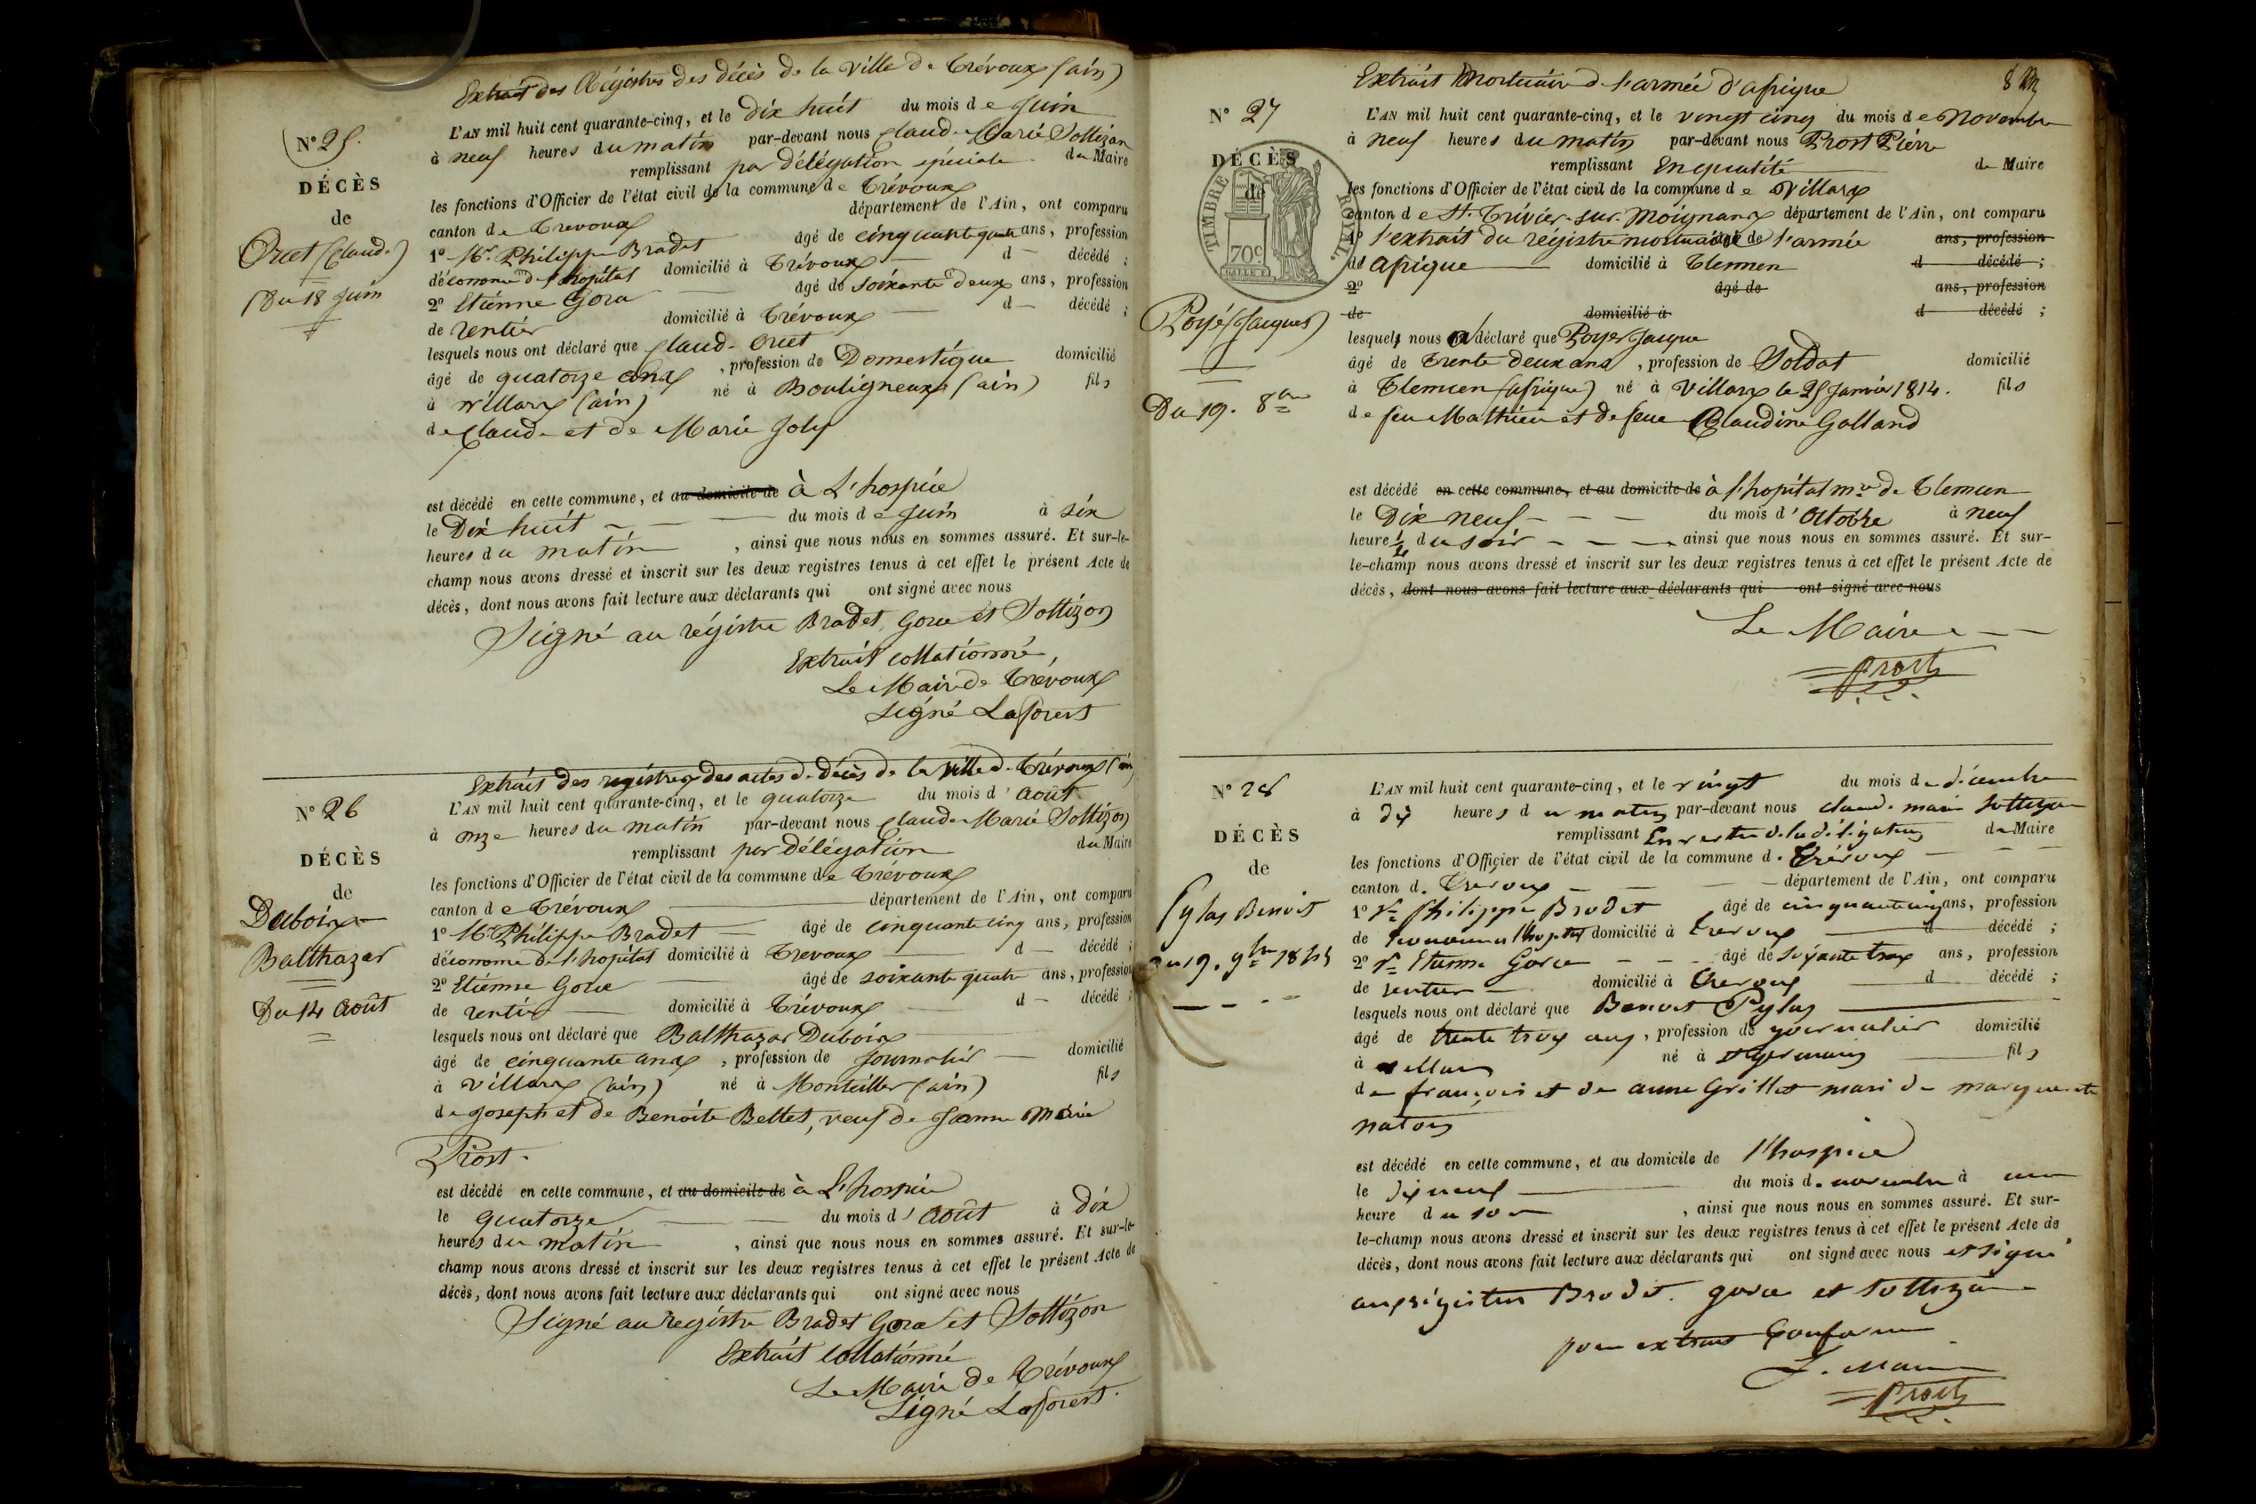 Extrait des Régistres des décès de la Ville de Trévoux (ain)
N° 25.
DÉCÈS
de
Oriet (Claude)
Du 18 Juin
L'AN mil huit cent quarante-cinq, et le dix huit du mois de Juin
à neuf heures du matin par-devant nous Claude Marie Sottizon
remplissant par délégation spéciale du Maire
les fonctions d'Officier de l'état civil de la commune de Trévoux
canton de Trevoux département de l'Ain, ont comparu
1° Mr Philippe Bradet âgé de cinquante quatre ans, profession
d'économe de l'hopital domicilié à Trévoux d décédé ;
2° Etienne Gora âgé de soixante deux ans, profession
de rentier domicilié à Trévoux d décédé ;
lesquels nous ont déclaré que Claude Oriet
âgé de quatorze ans, profession de Domestique domicilié
à Villars (ain) né à Bouligneux (ain) fils
de Claude et de Marie Joly
est décédé en cette commune, et au domicile de à L'hospice
le Dix huit du mois de Juin à six
heures du matin, ainsi que nous nous en sommes assuré. Et sur-le-
champ nous avons dressé et inscrit sur les deux registres tenus à cet effet le présent Acte de
décès, dont nous avons fait lecture aux déclarants qui ont signé avec nous
Signé au régistre Bradet, Gora et Sottizon
Extrait collationné,
Le Maire de Trévoux
signé Laforest
Extrait des registres des actes de décès de la ville de Trévoux (ain)
N° 26
DÉCÈS
de
Dubois
Balthazar
Du 14 Août
L'AN mil huit cent quarante-cinq, et le quatorze du mois d'Août
à onze heures du matin par-devant nous Claude Marie Sottizon
remplissant par délégation du Maire
les fonctions d'Officier de l'état civil de la commune de Trévoux
canton de Trévoux département de l'Ain, ont comparu
1° Mr Philippe Bradet âgé de cinquante cinq ans, profession
d'économe de l'hopital domicilié à Trevoux d décédé ;
2° Etienne Gora âgé de soixante quatre ans, profession
de rentier domicilié à Trévoux d décédé ;
lesquels nous ont déclaré que Balthazar Dubois
âgé de cinquante ans, profession de Journalier domicilié
à Villars (ain) né à Montellier (ain) fils
de Joseph et de Benoite Bettet, veuf de Jeanne Marie
Prost.
est décédé en cette commune, et au domicile de à L'hospice
le quatorze du mois d'Août à dix
heures du matin, ainsi que nous nous en sommes assuré. Et sur-le-
champ nous avons dressé et inscrit sur les deux registres tenus à cet effet le présent Acte de
décès, dont nous avons fait lecture aux déclarants qui ont signé avec nous
Signé au régistre Bradet Gora et Sottizon
Extrait collationné
Le Maire de Trévoux
Signé Laforest.
Extrait Mortuaire de l'armée d'afrique
N° 27
DÉCÈS
de
TIMBRE ROYAL
70c
Poyé (Jacques)
Du 19. 8bre
L'AN mil huit cent quarante-cinq, et le vingt cinq du mois de Novembre
à neuf heures du matin par-devant nous Prost Pierre
remplissant En qualité de Maire
les fonctions d'Officier de l'état civil de la commune de Villars
canton de St. Trivier-sur-Moignans département de l'Ain, ont comparu
1° l'extrait du régistre mortuaire âgé de l'armée ans, profession
de Afrique domicilié à Tlemcen d décédé ;
2° âgé de ans, profession
de domicilié à d décédé ;
lesquels nous a déclaré que Poyer Jacque
âgé de trente deux ans, profession de Soldat domicilié
à Tlemcen (afrique) né à Villars le 25 Janvier 1814. fils
de feu Mathieu et de feue Claudine Galland
est décédé en cette commune, et au domicile de à l'hopital mre de Tlemcen
le Dix neuf du mois d'Octobre à neuf
heure 1/2 du soir ainsi que nous nous en sommes assuré. Et sur-
le-champ nous avons dressé et inscrit sur les deux registres tenus à cet effet le présent Acte de
décès, dont nous avons fait lecture aux déclarants qui ont signé avec nous
Le Maire
Prost
N° 28
DÉCÈS
de
Pylas Benoit
du 19. 9bre 1845
L'AN mil huit cent quarante-cinq, et le vingt du mois de décembre
à dix heures du matin par-devant nous claude marie Sottizon
remplissant En vertu de la délégation du Maire
les fonctions d'Officier de l'état civil de la commune de Trévoux
canton de Trevoux département de l'Ain, ont comparu
1° Sr Philippe Brodet âgé de cinquante cinq ans, profession
de domicilié à Trevoux d décédé ;
2° Sr Etienne Gora âgé de soixante trois ans, profession
de rentier domicilié à Trevoux d décédé ;
lesquels nous ont déclaré que Benoit Pylas
âgé de trente trois ans, profession de journalier domicilié
à villars né à St germain fils
de françois et de anne Grillet mari de marguerite
naton
est décédé en cette commune, et au domicile de l'hospice
le dix neuf du mois de novembre à une
heure du soir, ainsi que nous nous en sommes assuré. Et sur-
le-champ nous avons dressé et inscrit sur les deux registres tenus à cet effet le présent Acte de
décès, dont nous avons fait lecture aux déclarants qui ont signé avec nous et signé
au régistre Brodet. gora et Sottizon
pour extrait Conforme
Le Maire
Prost